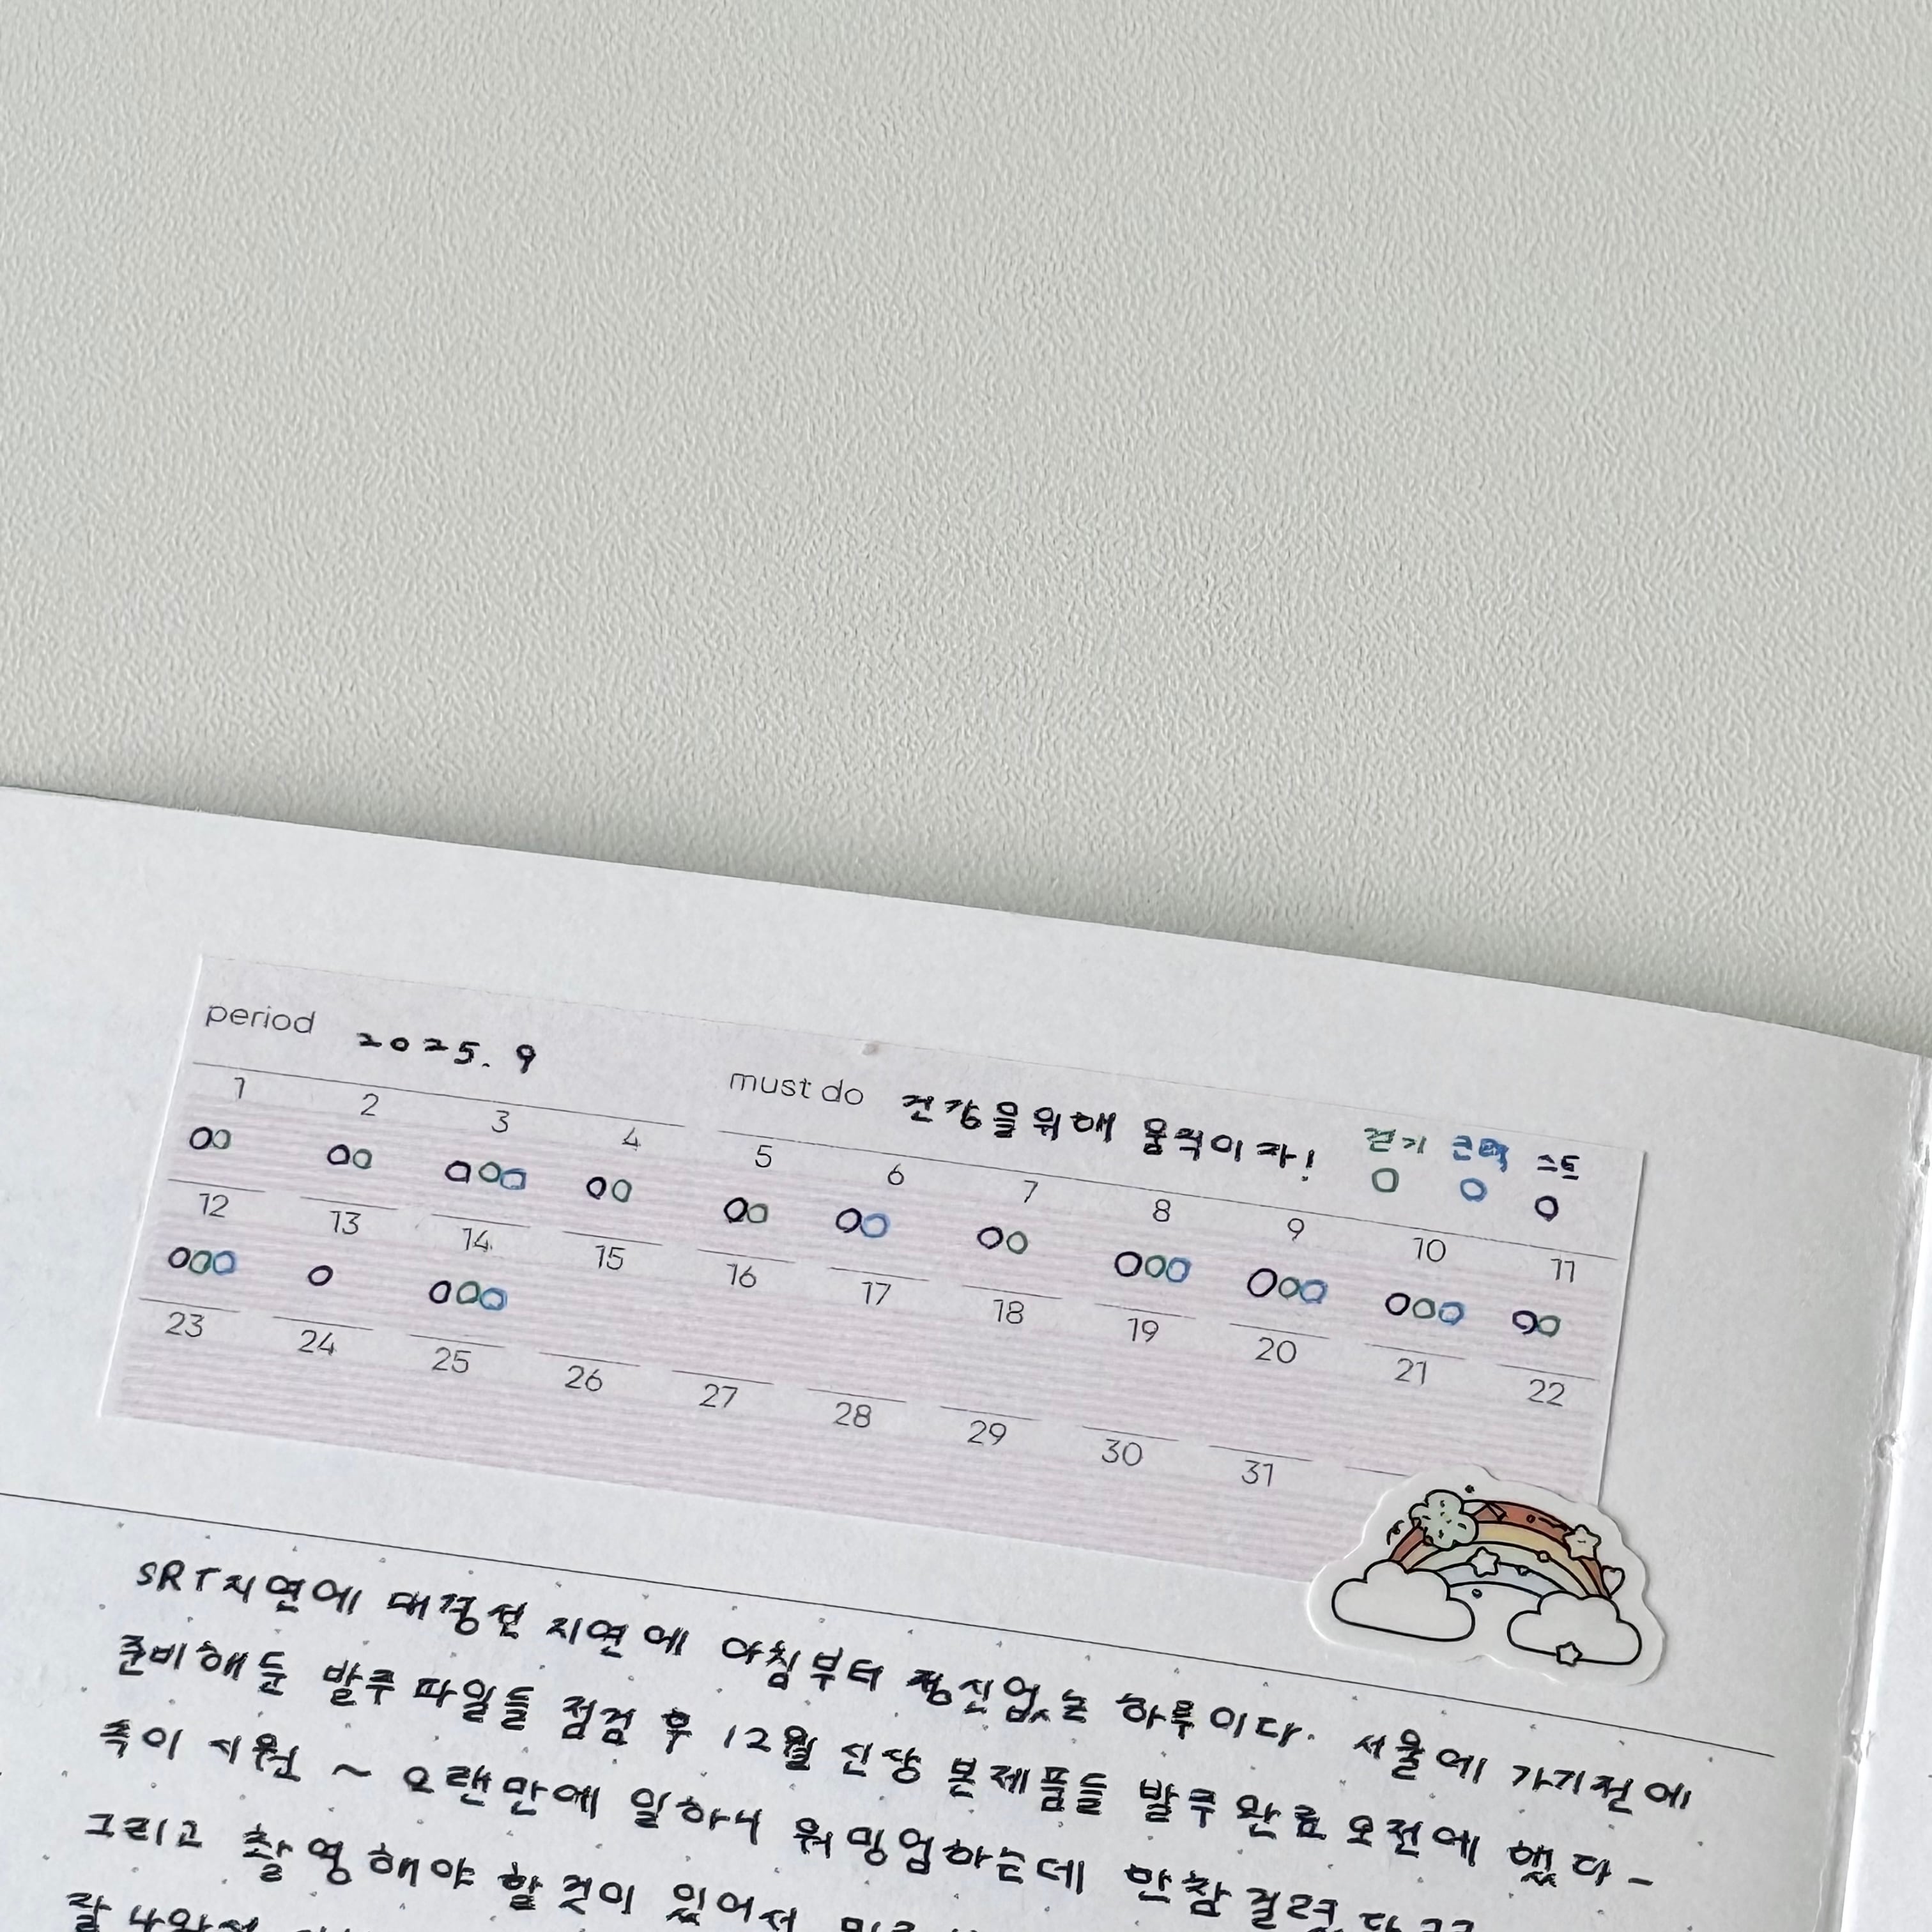 period 2025. 9
must do 건강을위해 움직이자! 걷기 근력 스트
1 2 3 4 5 6 7 8 9 10 11
12 13 14 15 16 17 18 19 20 21 22
23 24 25 26 27 28 29 30 31
SRT지연에 대경선 지연에 아침부터 정신없는 하루이다. 서울에 가기전에
준비해둔 발주파일들 점검 후 12월 신상 본제품들 발주완료 오전에 했다-
속이 시원 ~ 오랜만에 일하니 워밍업하는데 한참걸렸다
그리고 촬영해야 할것이 있어서
잘 나와서